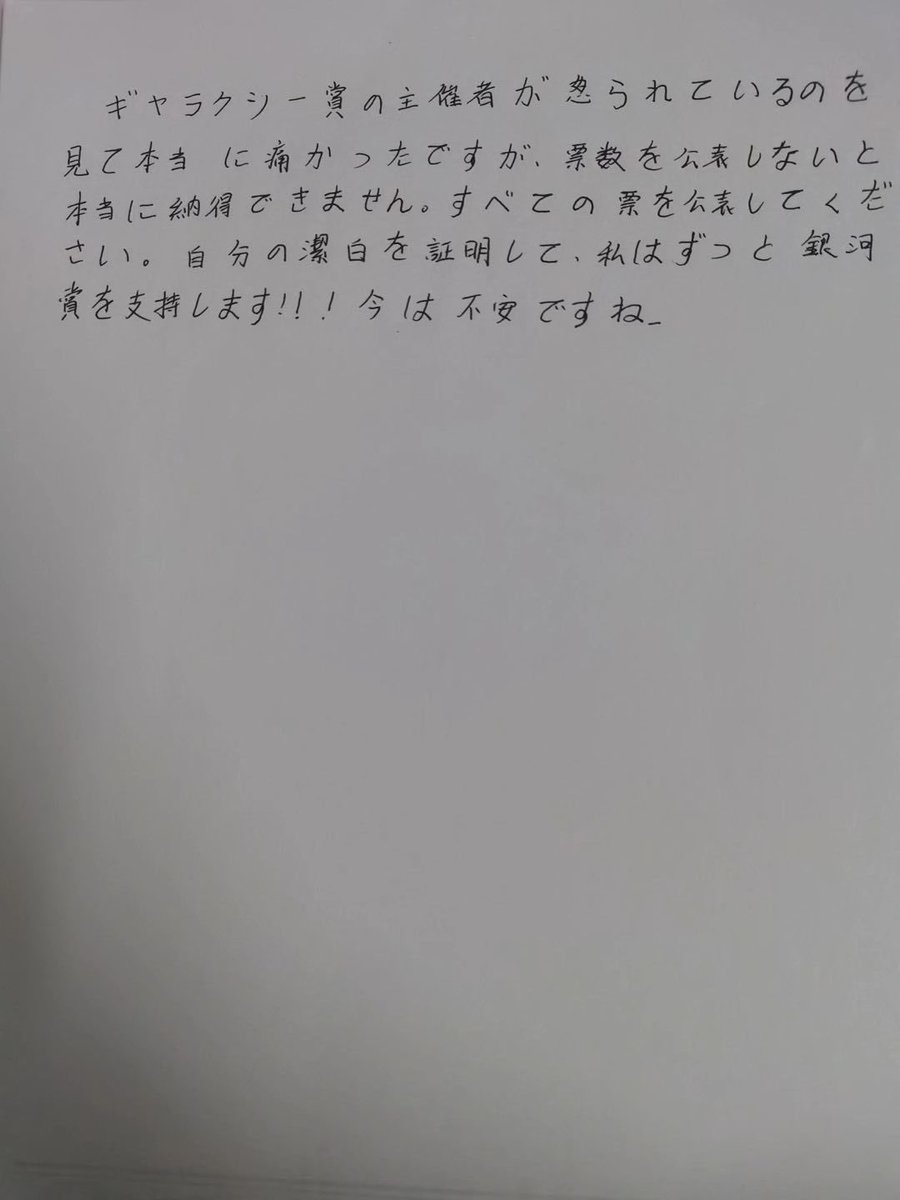 ギャラクシー賞の主催者が怒られているのを
見て本当 に痛かったですが、票数を公表しないと
本当に納得できません。すべての票を公表してくだ
さい。自分の潔白を証明して、私はずっと銀河
賞を支持します!!!今は不安ですね_